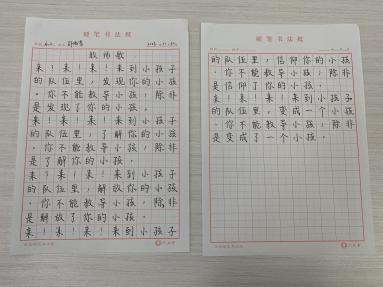 硬笔书法纸
教师歌
来！来！来！来到小孩子
的队伍里，发现你的小孩
。你不能教导小孩，除非
是发现了你的小孩。
来！来！来！来到小孩子
的队伍里，了解你的小孩
。你不能教导小孩，除非
是了解你的小孩。
来！来！来！来到小孩子
的队伍里，解放你的小孩
。你不能教导小孩，除非
是解放了你的小孩。
来！来！来！来到小孩子
硬笔书法纸
的队伍里，信仰你的小孩
。你不能教导小孩，除非
是信仰了你的小孩。
来！来！来！来到小孩子
的队伍里，变成一个小孩
。你不能教导小孩，除非
是变成了一个小孩。